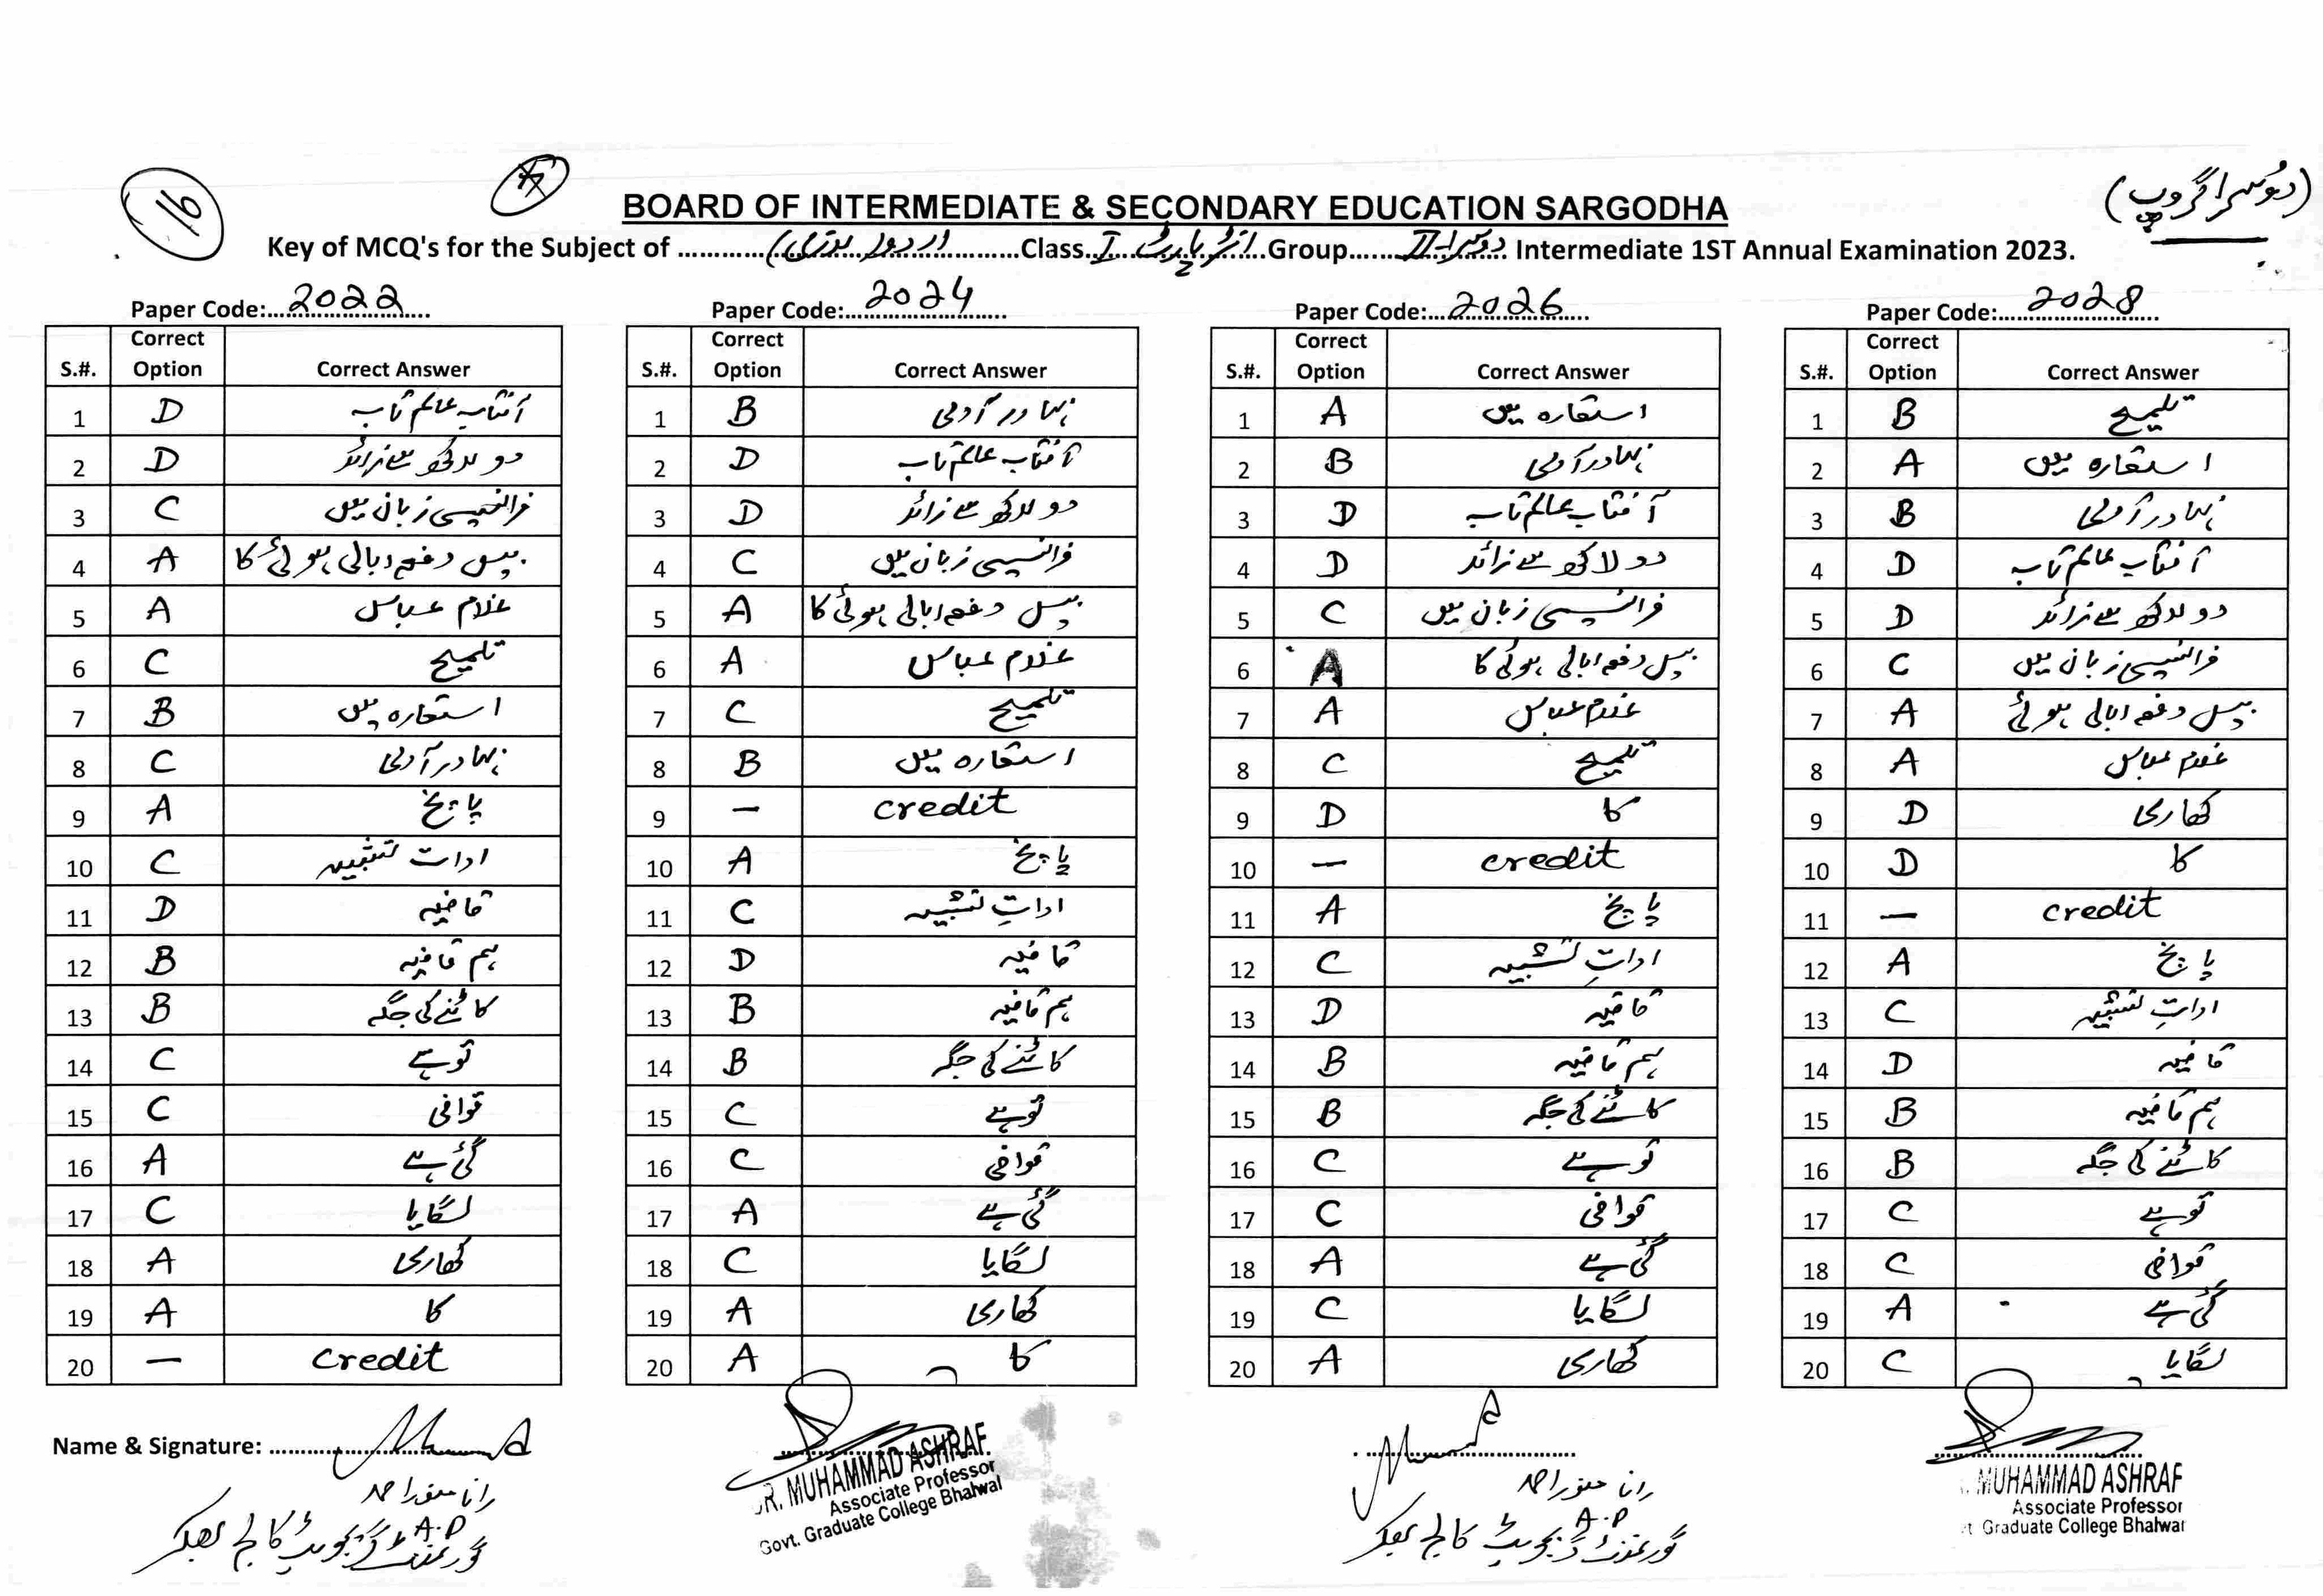 16
(دوسرا گروپ)
BOARD OF INTERMEDIATE & SECONDARY EDUCATION SARGODHA
Key of MCQ's for the Subject of ............اردو (لازمی)............Class..انٹر پارٹ I..Group......دوسرا-II.. Intermediate 1ST Annual Examination 2023.
Paper Code:...2022...
S.#. Correct Option Correct Answer
1 D آفتاب عالم تاب
2 D دو لاکھ سے زائد
3 C فرانسیسی زبان میں
4 A بیس دفعہ ابالی ہوئی کا
5 A غلام عباس
6 C تلمیح
7 B استعارہ میں
8 C بہادر آدمی
9 A پانچ
10 C ادات تشبیہ
11 D قافیہ
12 B ہم قافیہ
13 B کاٹنے کی جگہ
14 C تو ہے
15 C قوافی
16 A گئی ہے
17 C لگایا
18 A کھاری
19 A کا
20 — credit
Paper Code:...2024...
S.#. Correct Option Correct Answer
1 B بہادر آدمی
2 D آفتاب عالم تاب
3 D دو لاکھ سے زائد
4 C فرانسیسی زبان میں
5 A بیس دفعہ ابالی ہوئی کا
6 A غلام عباس
7 C تلمیح
8 B استعارہ میں
9 — credit
10 A پانچ
11 C اداتِ تشبیہ
12 D قافیہ
13 B ہم قافیہ
14 B کاٹنے کی جگہ
15 C تو ہے
16 C قوافی
17 A گئی ہے
18 C لگایا
19 A کھاری
20 A کا
Paper Code:...2026...
S.#. Correct Option Correct Answer
1 A استعارہ میں
2 B بہادر آدمی
3 D آفتاب عالم تاب
4 D دو لاکھ سے زائد
5 C فرانسیسی زبان میں
6 A بیس دفعہ ابالی ہوئی کا
7 A غلام عباس
8 C تلمیح
9 D کا
10 — credit
11 A پانچ
12 C اداتِ تشبیہ
13 D قافیہ
14 B ہم قافیہ
15 B کاٹنے کی جگہ
16 C تو ہے
17 C قوافی
18 A گئی ہے
19 C لگایا
20 A کھاری
Paper Code:...2028...
S.#. Correct Option Correct Answer
1 B تلمیح
2 A استعارہ میں
3 B بہادر آدمی
4 D آفتاب عالم تاب
5 D دو لاکھ سے زائد
6 C فرانسیسی زبان میں
7 A بیس دفعہ ابالی ہوئی
8 A غلام عباس
9 D کھاری
10 D کا
11 — credit
12 A پانچ
13 C اداتِ تشبیہ
14 D قافیہ
15 B ہم قافیہ
16 B کاٹنے کی جگہ
17 C تو ہے
18 C قوافی
19 A گئی ہے
20 C لگایا
Name & Signature: ..........
رانا منور احمد
A.P
گورنمنٹ گریجویٹ کالج بھکر
DR. MUHAMMAD ASHRAF
Associate Professor
Govt. Graduate College Bhalwal
رانا منور احمد
A.P
گورنمنٹ گریجویٹ کالج بھکر
MUHAMMAD ASHRAF
Associate Professor
t Graduate College Bhalwal